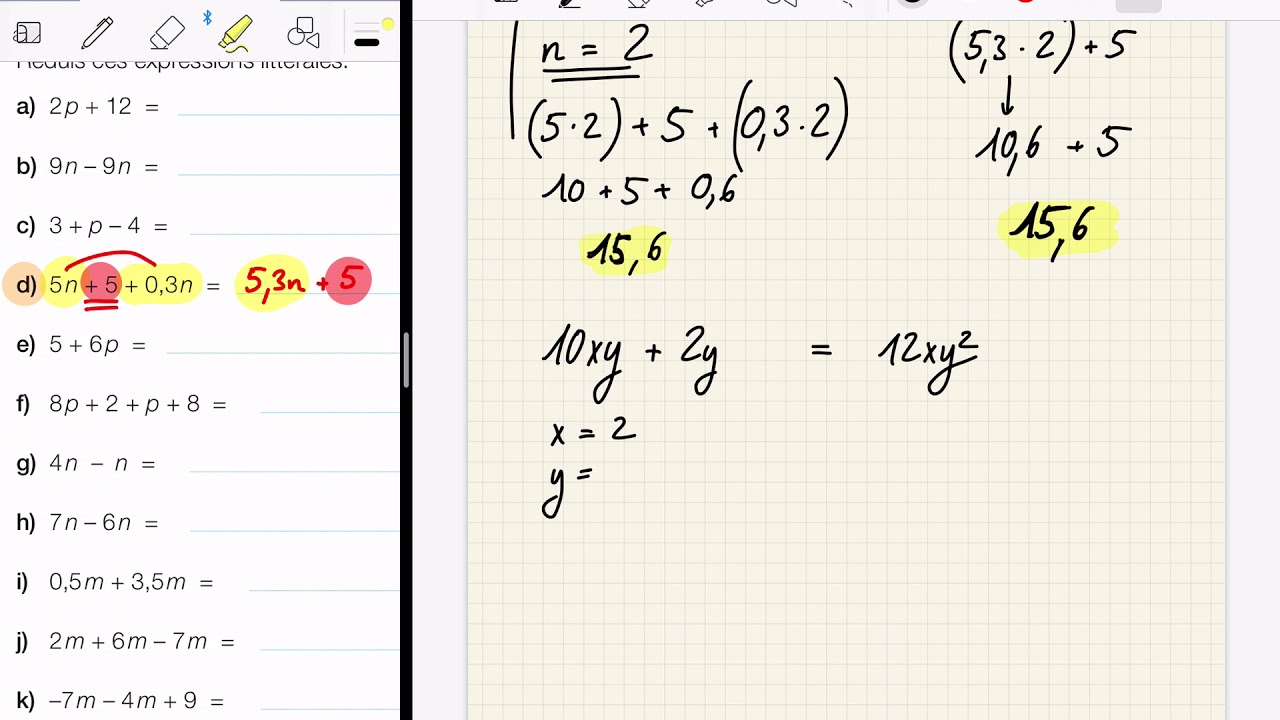 Réduis ces expressions littérales.
a) 2p + 12 =
b) 9n – 9n =
c) 3 + p – 4 =
d) 5n + 5 + 0,3n = 5,3n + 5
e) 5 + 6p =
f) 8p + 2 + p + 8 =
g) 4n – n =
h) 7n – 6n =
i) 0,5m + 3,5m =
j) 2m + 6m – 7m =
k) –7m – 4m + 9 =
n = 2
(5·2) + 5 + (0,3·2)
10 + 5 + 0,6
15,6
(5,3·2) + 5
↓
10,6 + 5
15,6
10xy + 2y = 12xy²
x = 2
y =